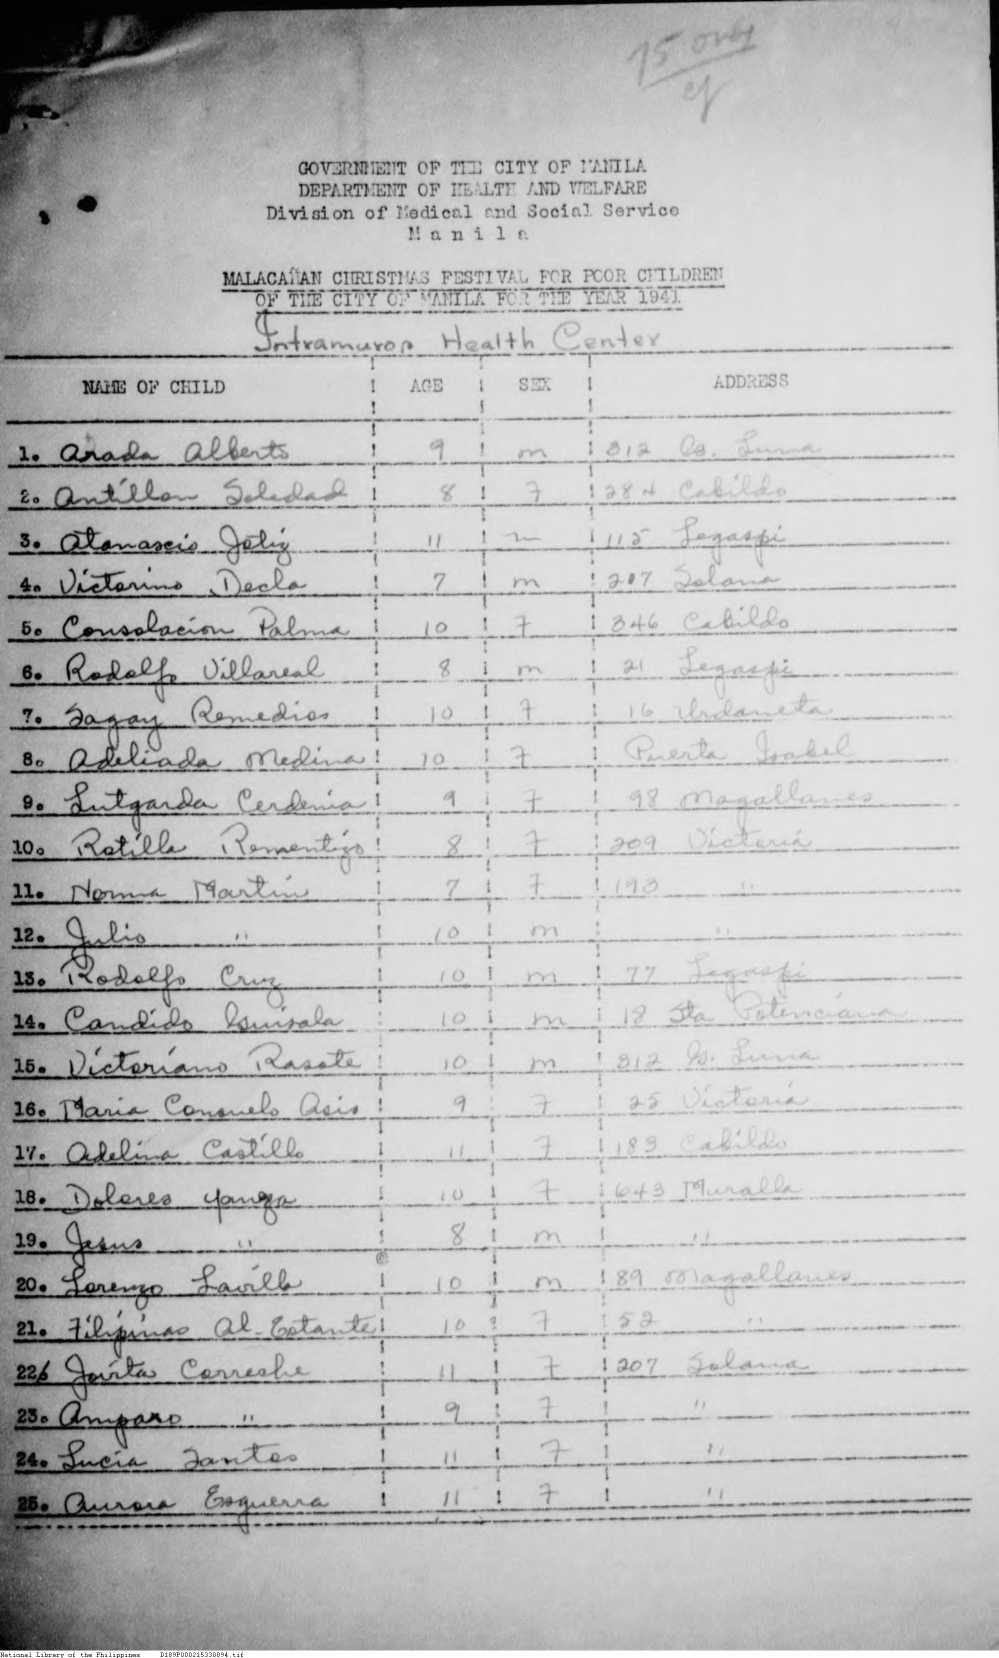 75 only
GOVERNMENT OF THE CITY OF MANILA
DEPARTMENT OF HEALTH AND WELFARE
Division of Medical and Social Service
M a n i l a
MALACAÑAN CHRISTMAS FESTIVAL FOR POOR CHILDREN
OF THE CITY OF MANILA FOR THE YEAR 1941
Intramuros Health Center
NAME OF CHILD ! AGE ! SEX ! ADDRESS
1. Arada Alberto 9 m 312 Gs. Luna
2. Antillon Soledad 8 F 284 Cabildo
3. Atanascio Feliz 11 m 115 Legaspi
4. Victorino Decla 7 m 207 Solana
5. Consolacion Palma 10 F 346 Cabildo
6. Rodolfo Villareal 8 m 21 Legaspi
7. Sagay Remedios 10 F 16 Urdaneta
8. Adeliada Medina 10 F Puerta Isabel
9. Lutgarda Cerdenia 9 F 98 Magallanes
10. Rotilla Rementizo 8 F 209 Victoria
11. Norma Martin 7 F 193 "
12. Julio " 10 m "
13. Rodolfo Cruz 10 m 77 Legaspi
14. Candido Guisala 10 m 18 Sta Potenciana
15. Victoriano Rasote 10 m 312 Gs. Luna
16. Maria Consuelo Asis 9 F 25 Victoria
17. Adelina Castillo 11 F 183 Cabildo
18. Dolores Yanga 10 F 643 Muralla
19. Jesus " 8 m "
20. Lorenzo Lavilla 10 m 89 Magallanes
21. Filipinas Al-Estante 10 F 52 "
22. Jovita Correche 11 F 207 Solana
23. Amparo " 9 F "
24. Lucia Santos 11 F "
25. Aurora Esguerra 11 F "
National Library of the Philippines D189P000215330894.tif